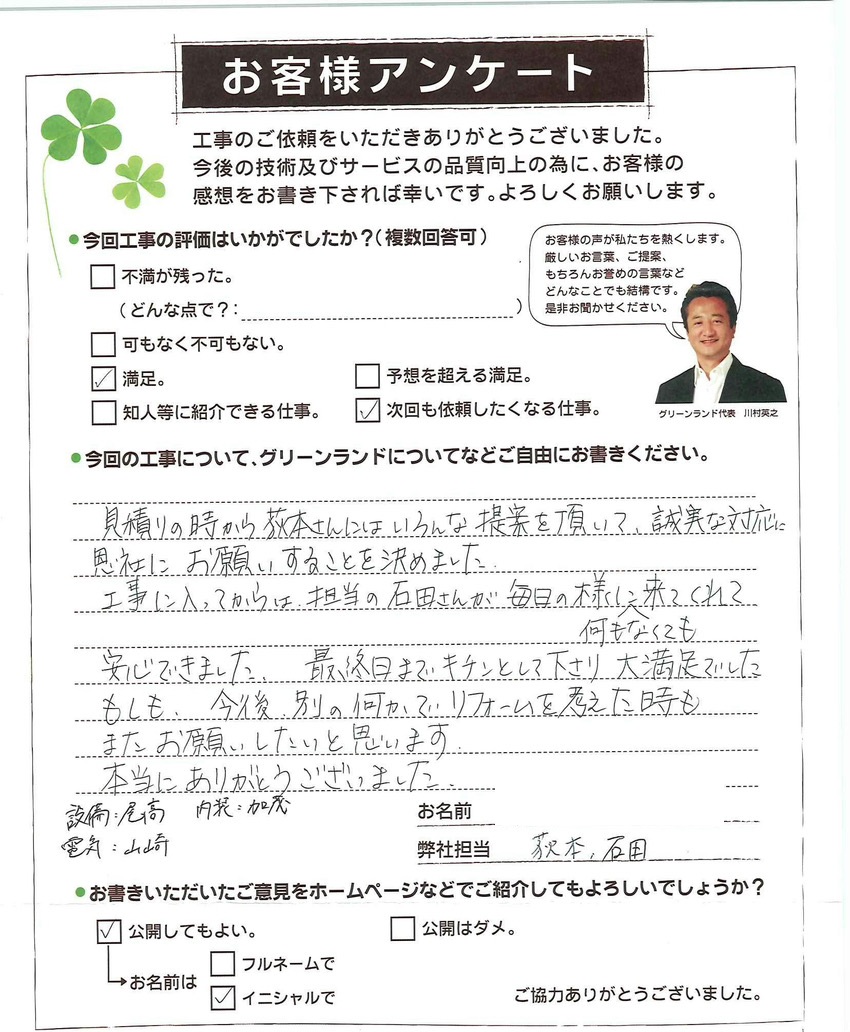 お客様アンケート
工事のご依頼をいただきありがとうございました。
今後の技術及びサービスの品質向上の為に、お客様の
感想をお書き下されば幸いです。よろしくお願いします。
●今回工事の評価はいかがでしたか?(複数回答可)
不満が残った。
(どんな点で?: )
可もなく不可もない。
満足。
予想を超える満足。
知人等に紹介できる仕事。
次回も依頼したくなる仕事。
お客様の声が私たちを熱くします。
厳しいお言葉、ご提案、
もちろんお誉めの言葉など
どんなことでも結構です。
是非お聞かせください。
グリーンランド代表 川村英之
●今回の工事について、グリーンランドについてなどご自由にお書きください。
見積りの時から荻本さんにはいろんな提案を頂いて、誠実な対応に
恩社にお願いすることを決めました。
工事に入ってからは、担当の石田さんが毎日の様に来てくれて
何もなくても
安心できました。最終日までキチンとして下さり大満足でした
もしも、今後別の何かでリフォームを考えた時も
またお願いしたいと思います。
本当にありがとうございました。
設備:尾高 内装:加茂
電気:山崎
お名前
弊社担当 荻本、石田
●お書きいただいたご意見をホームページなどでご紹介してもよろしいでしょうか?
公開してもよい。
公開はダメ。
お名前は
フルネームで
イニシャルで
ご協力ありがとうございました。